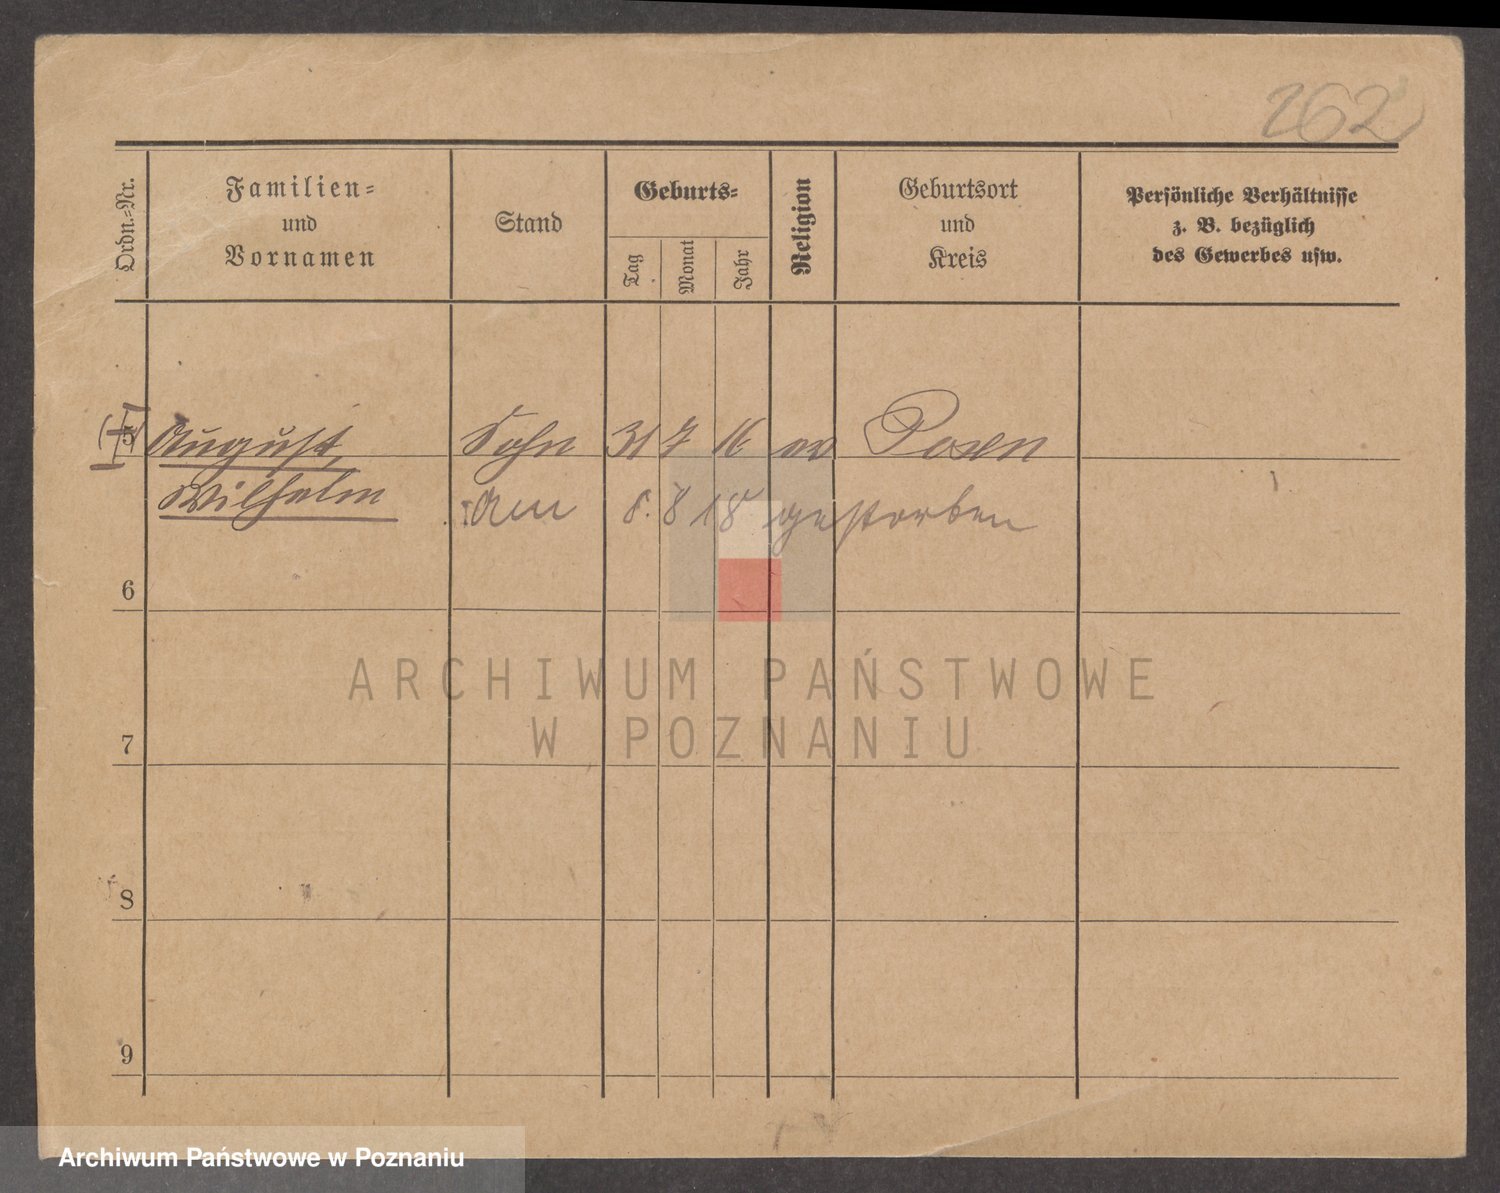 262
Ordn.=Nr.
Familien=
und
Vornamen
Stand
Geburts=
Tag
Monat
Jahr
Religion
Geburtsort
und
Kreis
Persönliche Verhältnisse
z. B. bezüglich
des Gewerbes usw.
5 August, Sohn 31 7 16 ev Posen
Wilhelm
Am 8. 8 18 gestorben
6
7
8
9
ARCHIWUM PAŃSTWOWE
W POZNANIU
Archiwum Państwowe w Poznaniu